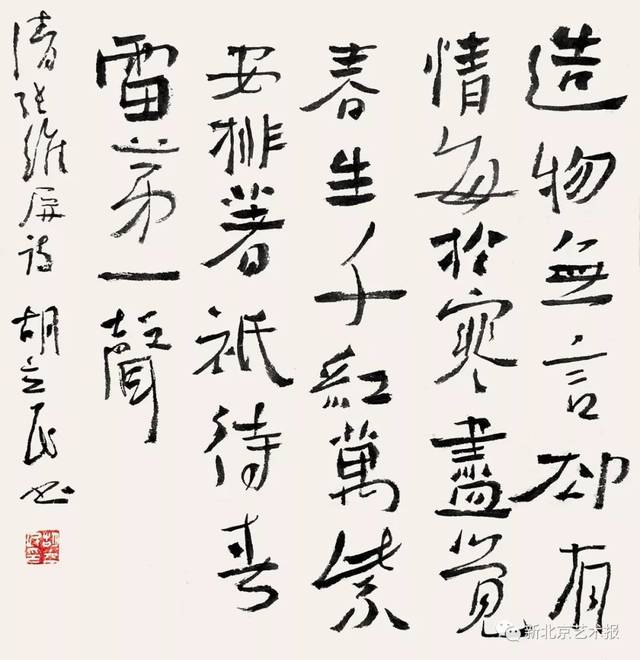 造物無言却有
情每於寒盡覺
春生千紅萬紫
安排著祇待春
雷第一聲
清張維屏詩 胡立民书
新北京艺术报